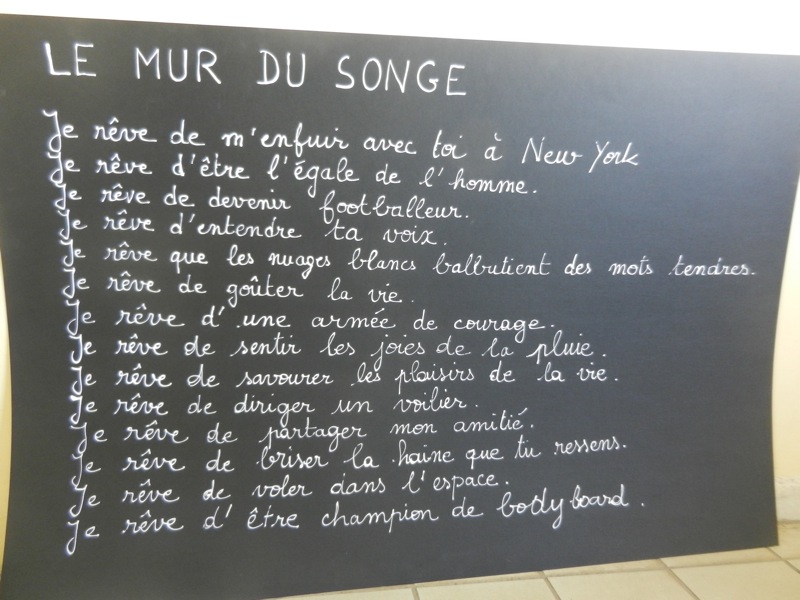 LE MUR DU SONGE
Je rêve de m'enfuir avec toi à New York
Je rêve d'être l'égale de l'homme.
Je rêve de devenir footballeur.
Je rêve d'entendre ta voix.
Je rêve que les nuages blancs balbutient des mots tendres.
Je rêve de goûter la vie.
Je rêve d'une armée de courage.
Je rêve de sentir les joies de la pluie.
Je rêve de savourer les plaisirs de la vie.
Je rêve de diriger un voilier.
Je rêve de partager mon amitié.
Je rêve de briser la haine que tu ressens.
Je rêve de voler dans l'espace.
Je rêve d'être champion de bodyboard.